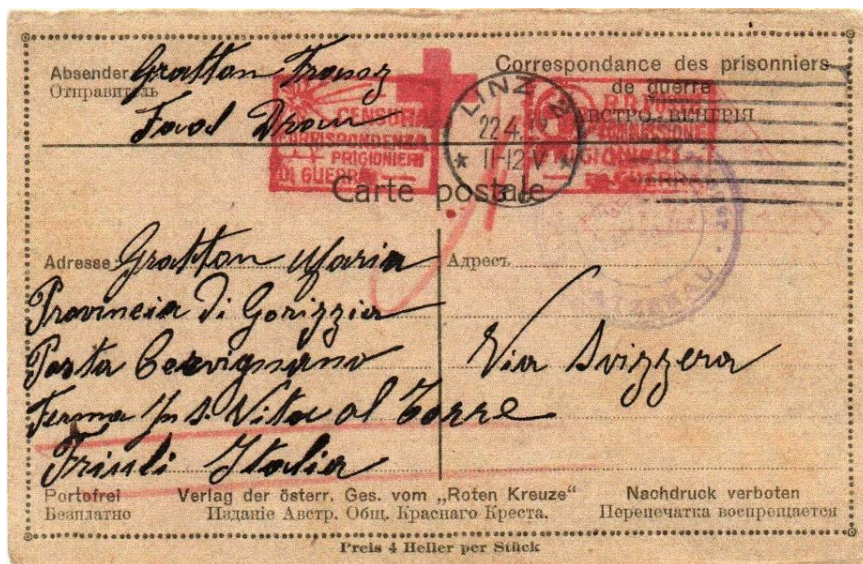 Absender Gratton
Отправитель
Correspondance des prisonniers
de guerre
CENSURA
CORRISPONDENZA
PRIGIONIERI
DI GUERRA
LINZ 2
22.4.
11-12 V
Carte postale
Adresse Gratton Maria
Адресъ
Provincia di Gorizzia
Posta Cervignano
Via Svizzera
Ferma In S. Vito al Torre
Friuli Italia
Portofrei
Безплатно
Verlag der österr. Ges. vom „Roten Kreuze“
Изданіе Австр. Общ. Краснаго Креста.
Nachdruck verboten
Перепечатка воспрещается
Preis 4 Heller per Stück